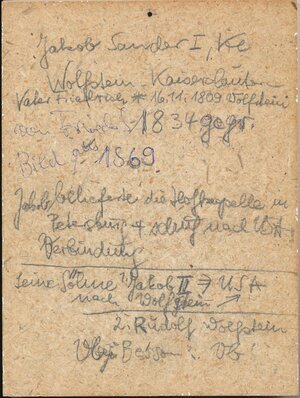 Jakob Sander I, Kc
Wolfstein Kaiserslautern
Vater Friedrich * 16.11.1809 Wolfstein
von Friedr. 1834 gegr.
Bild 1869
Jakob belieferte die Hofkapelle in
Petersburg + schlug nach USA
Verbindung
seine Söhne 1. Jakob II → USA
nach Wolfstein ↗
2. Rudolf Wolfstein